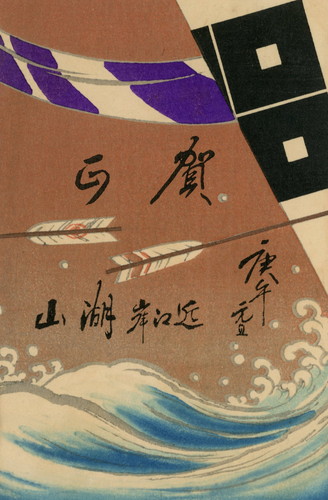 賀正
庚午
元旦
近江岸
湖山